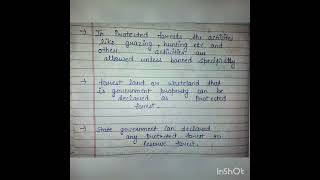 → In Protected forests the activities
like grazing, hunting etc and
other activities are
allowed unless banned specifically
→ forest land or wasteland that
is government property can be
declared as protected
forest.
→ State government can declared
any protected forest to
reserve forest.
InShOt